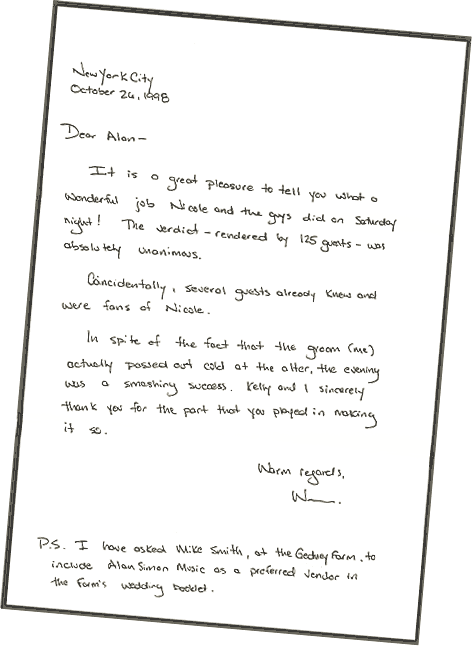 New York City
October 26, 1998
Dear Alan—
It is a great pleasure to tell you what a
wonderful job Nicole and the guys did on Saturday
night! The verdict - rendered by 125 guests - was
absolutely unanimous.
Coincidentally, several guests already knew and
were fans of Nicole.
In spite of the fact that the groom (me)
actually passed out cold at the alter, the evening
was a smashing success. Kelly and I sincerely
thank you for the part that you played in making
it so.
Warm regards,
P.S. I have asked Mike Smith, at the Gedney Farm, to
include Alan Simon Music as a preferred vendor in
the Farm's wedding booklet.